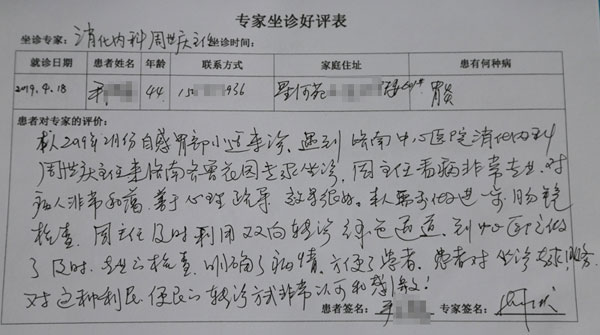 专家坐诊好评表
坐诊专家：消化内科周世庆主任 坐诊时间：
就诊日期 患者姓名 年龄 联系方式 家庭住址 患有何种病
2019.4.18 44 15 936 星河苑 胃炎
患者对专家的评价：
本人2019年2月份自感胃部不适来诊，遇到济南中心医院消化内科
周世庆主任来济南 坐诊，周主任看病非常专业，对
病人非常和蔼，善于心理疏导，效果很好。本人需 进一步肠镜
检查，周主任及时利用双向转诊绿色通道，到中心医院做
了及时、专业的检查，明确了病情，方便了患者，患者对坐诊专家服务
对这种利民便民的转诊方式非常认可和感激！
患者签名： 专家签名：